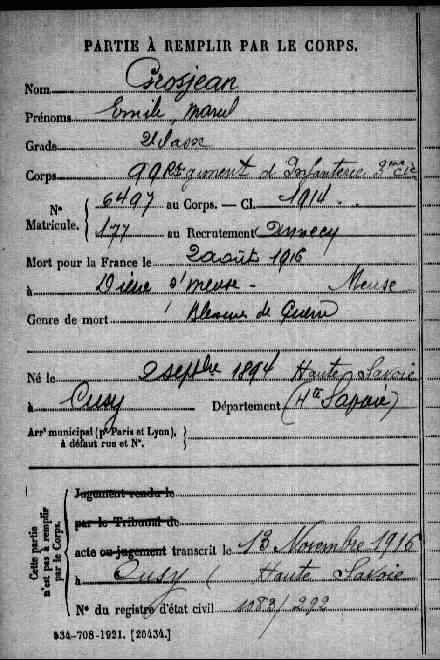 PARTIE À REMPLIR PAR LE CORPS.
Nom Grosjean
Prénoms Emile, Marcel
Grade 2e Classe
Corps 99 Régiment d'Infanterie 9me Cie
N° Matricule. 6497 au Corps. — Cl. 1914
177 au Recrutement Annecy
Mort pour la France le 2 août 1916
à Dieue s/ meuse - Meuse
Genre de mort Blessures de Guerre
Né le 2 septbre 1894 Haute Savoie
à Cusy Département (Hte Savoie)
Arrt municipal (pr Paris et Lyon),
à défaut rue et N°.
Cette partie n'est pas à remplir par le Corps.
Jugement rendu le
par le Tribunal de
acte ou jugement transcrit le 13 Novembre 1916
à Cusy ( Haute Savoie
N° du registre d'état civil 1082/292
534-708-1921. [26434.]